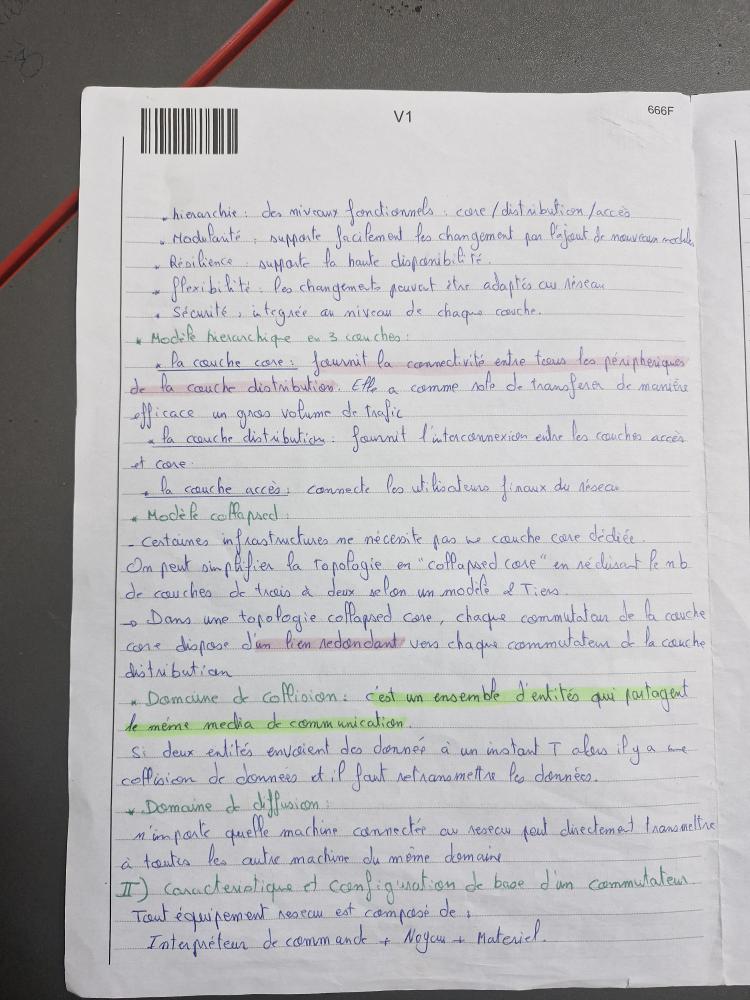 V1
666F
. hierarchie : des niveaux fonctionnels : core / distribution / accès
. Modularité : supporte facilement les changement par l'ajout de nouveaux module
* Résilience : supporte la haute disponibilité.
* flexibilité : les changements peuvent être adaptés au réseau
. Sécurité : integrée au niveau de chaque couche.
* Modèle hierarchique en 3 couches :
* la couche core : fournit la connectivité entre tous les péripheriques
de la couche distribution. Elle a comme role de transferer de manière
efficace un gros volume de trafic
* la couche distribution : fournit l'interconnexion entre les couches accès
et core.
. la couche accès : connecte les utilisateurs finaux du réseau
* Modèle collapsed :
- certaines infrastructures ne nécessite pas une couche core dédiée.
On peut simplifier la topologie en "collapsed core" en réduisant le nb
de couches de trois à deux selon un modèle 2 Tiers.
→ Dans une topologie collapsed core, chaque commutateur de la couche
core dispose d'un lien redondant vers chaque commutateur de la couche
distribution
* Domaine de collision : c'est un ensemble d'entités qui partagent
le même media de communication.
Si deux entités envoient des donnée à un instant T alors il y a une
collision de données et il faut retransmettre les données.
* Domaine de diffusion :
n'importe quelle machine connectée au reseau peut directement transmettre
à toutes les autre machine du même domaine
II) Caracteristique et Configuration de base d'un commutateur
Tout équipement reseau est composé de :
Interpréteur de commande + Noyau + Materiel.